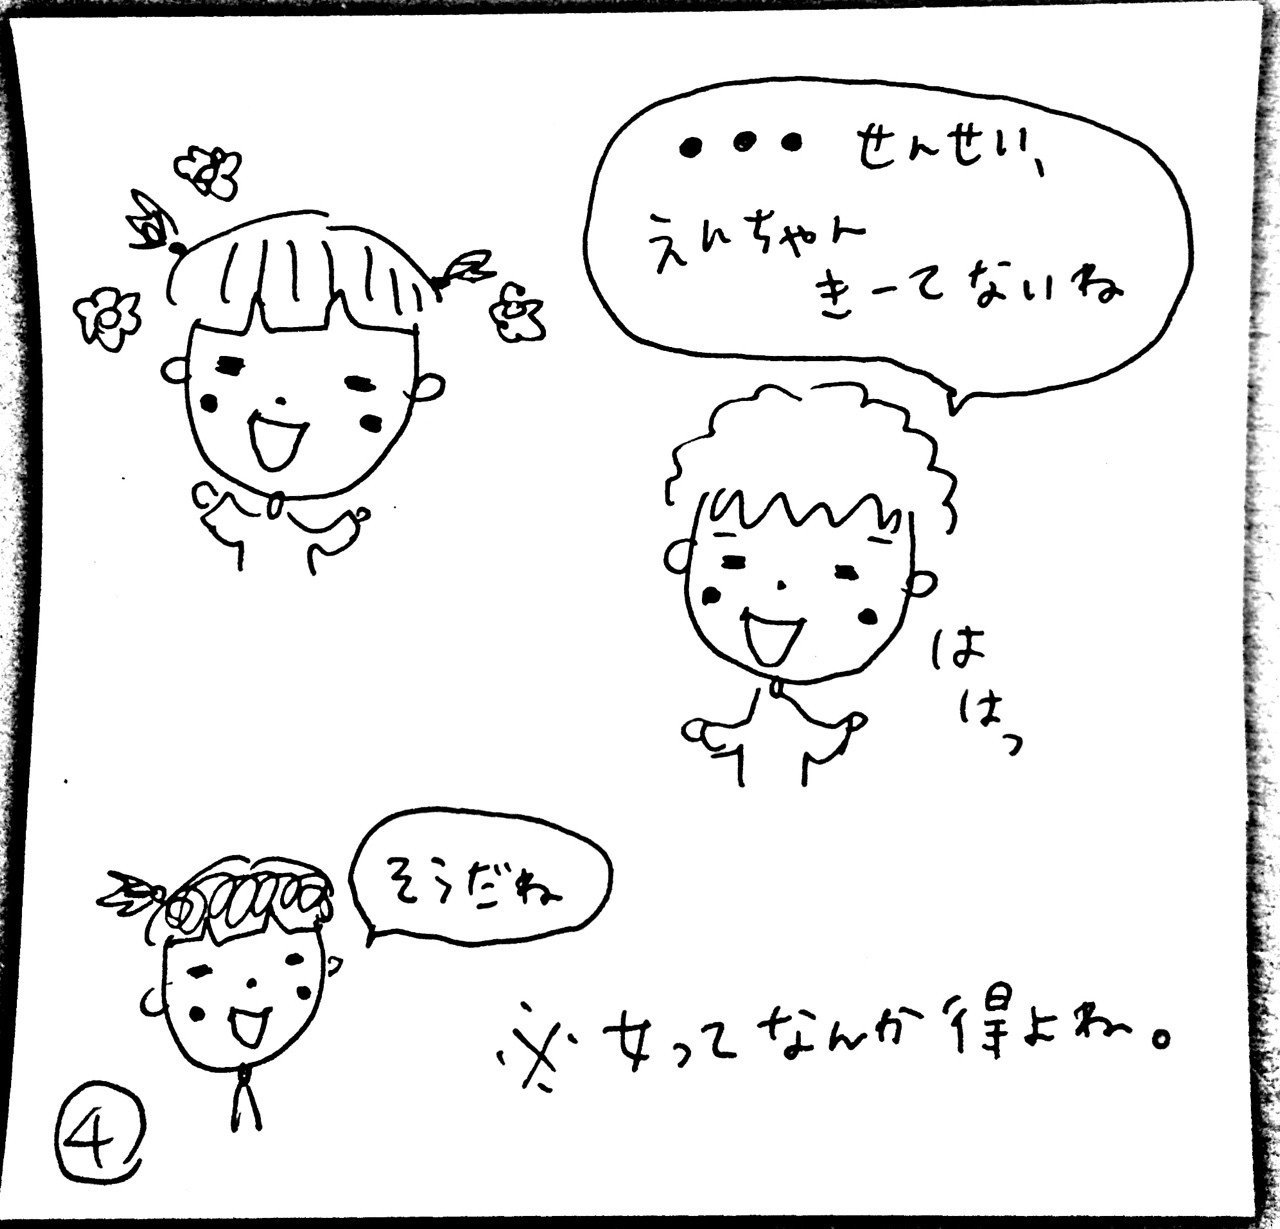 ・・・せんせい、
えんちゃん
きーてないね
は
はっ
そうだね
※女ってなんか得よね。
④